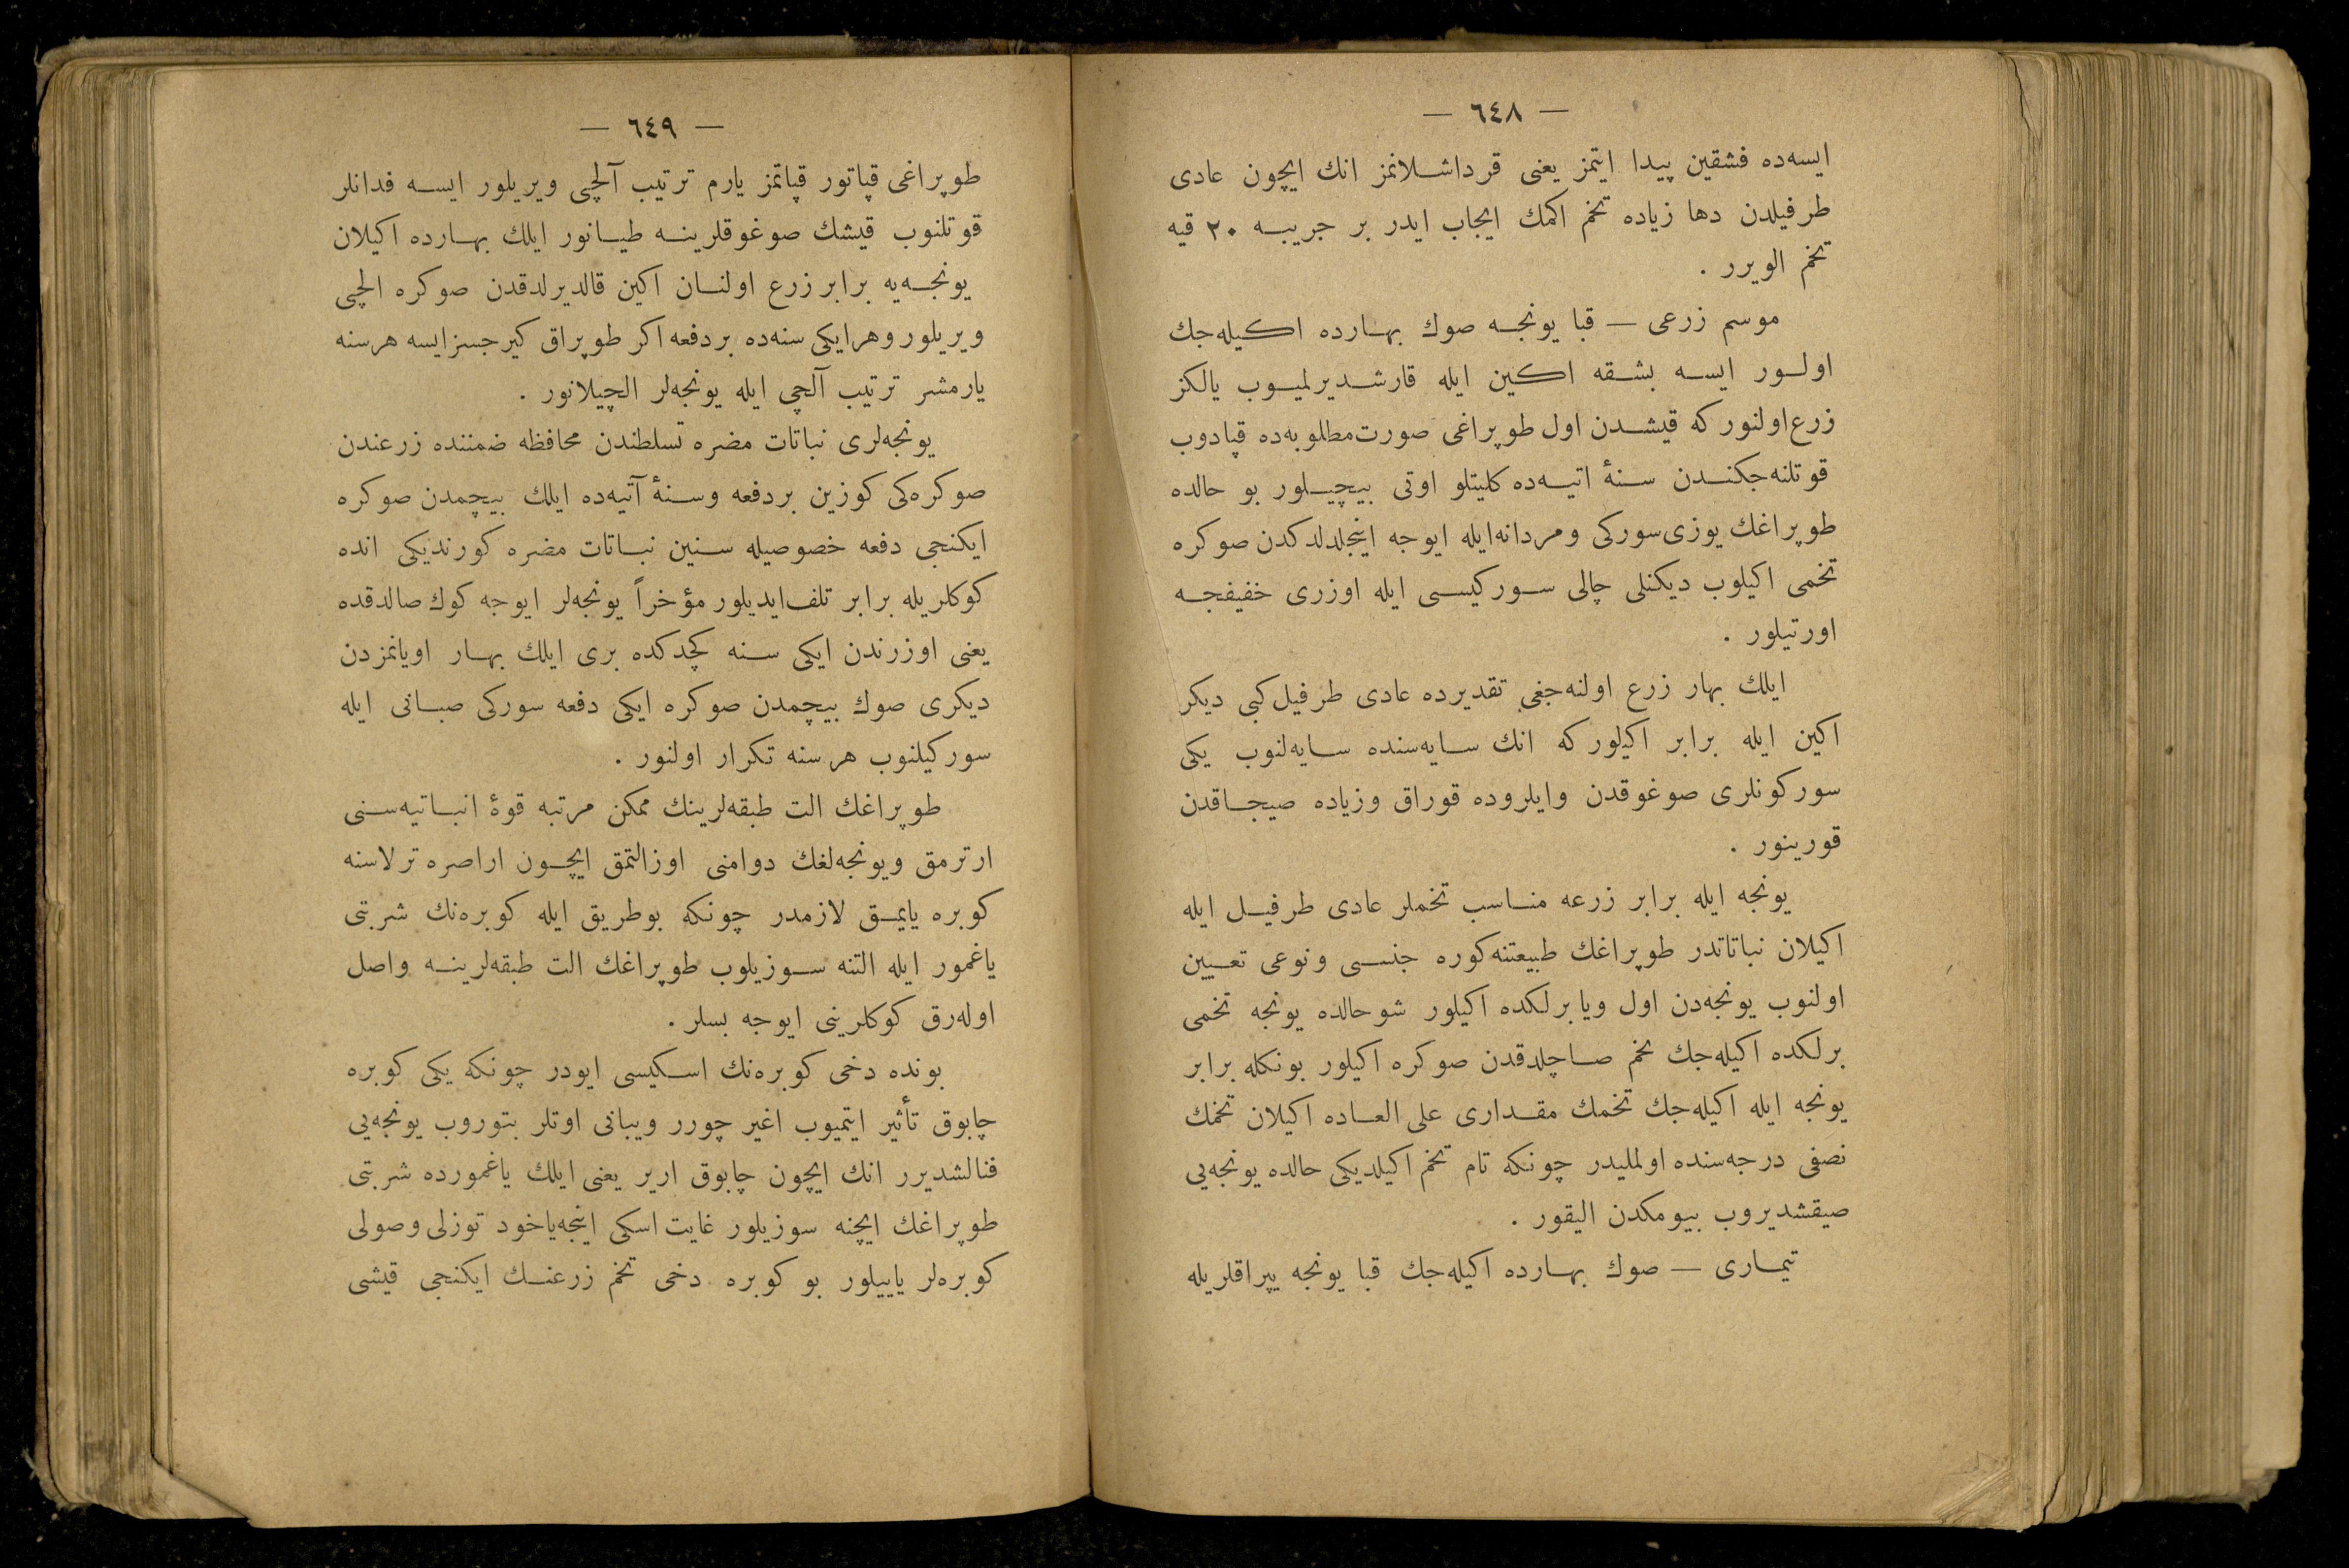 — ٦٤٨ —
ایسه‌ده فشقین پیدا ایتمز یعنی قرداشلانمز انك ایچون عادی
طرفیلدن دها زیاده تخم اكمك ایجاب ایدر بر جریبه ٢٠ قیه
تخم الویرر .
موسم زرعی — قبا یونجه صوك بهارده اكیله‌جك
اولور ایسه بشقه اكین ایله قارشدیرلمیوب یالكز
زرع‌اولنور كه قیشدن اول طوپراغی صورت‌مطلوبه‌ده قپادوب
قوتلنه‌جكندن سنهٔ اتیه‌ده كلیتلو اوتی بیچیلور بو حالده
طوپراغك یوزی‌سوركی ومردانه‌ایله ایوجه اینجلدلدكدن صوكره
تخمی اكیلوب دیكنلی چالی سوركیسی ایله اوزری خفیفجه
اورتیلور .
ایلك بهار زرع اولنه‌جغی تقدیرده عادی طرفیل كبی دیكر
اكین ایله برابر اكیلور كه انك سایه‌سنده سایه‌لنوب یكی
سوركونلری صوغوقدن وایلروده قوراق وزیاده صیجاقدن
قورینور .
یونجه ایله برابر زرعه مناسب تخملر عادی طرفیل ایله
اكیلان نباتاتدر طوپراغك طبیعتنه‌كوره جنسی ونوعی تعیین
اولنوب یونجه‌دن اول ویا برلكده اكیلور شو حالده یونجه تخمی
برلكده اكیله‌جك تخم صاچلدقدن صوكره اكیلور بونكله برابر
یونجه ایله اكیله‌جك تخمك مقداری علی العاده اكیلان تخمك
نصفی درجه‌سنده اولملیدر چونكه تام تخم اكیلدیكی حالده یونجه‌یی
صیقشدیروب بیومكدن الیقور .
تیماری — صوك بهارده اكیله‌جك قبا یونجه یپراقلریله
— ٦٤٩ —
طوپراغی قپاتور قپاتمز یارم ترتیب آلچی ویریلور ایسه فدانلر
قوتلنوب قیشك صوغوقلرینه طیانور ایلك بهارده اكیلان
یونجه‌یه برابر زرع اولنان اكین قالدیرلدقدن صوكره الچی
ویریلور وهرایكی سنه‌ده بردفعه اكر طوپراق كیرجسزایسه هرسنه
یارمشر ترتیب آلچی ایله یونجه‌لر الچیلانور .
یونجه‌لری نباتات مضره تسلطندن محافظه ضمننده زرعندن
صوكره‌كی كوزین بردفعه وسنهٔ آتیه‌ده ایلك بیچمدن صوكره
ایكنجی دفعه خصوصیله سنین نباتات مضره كورندیكی انده
كوكلریله برابر تلف‌ایدیلور مؤخراً یونجه‌لر ایوجه كوك صالدقده
یعنی اوزرندن ایكی سنه كچدكده بری ایلك بهار اویانمزدن
دیكری صوك بیچمدن صوكره ایكی دفعه سوركی صبانی ایله
سوركیلنوب هر سنه تكرار اولنور .
طوپراغك الت طبقه‌لرینك ممكن مرتبه قوهٔ انباتیه‌سنی
ارترمق ویونجه‌لغك دوامنی اوزالتمق ایچون اراصره ترلاسنه
كوبره یایمق لازمدر چونكه بوطریق ایله كوبره‌نك شربتی
یاغمور ایله التنه سوزیلوب طوپراغك الت طبقه‌لرینه واصل
اوله‌رق كوكلرینی ایوجه بسلر .
بونده دخی كوبره‌نك اسكیسی ایودر چونكه یكی كوبره
چابوق تأثیر ایتمیوب اغیر چورر ویبانی اوتلر بتوروب یونجه‌یی
فنالشدیرر انك ایچون چابوق اریر یعنی ایلك یاغمورده شربتی
طوپراغك ایچنه سوزیلور غایت اسكی اینجه‌یاخود توزلی وصولی
كوبره‌لر یاییلور بو كوبره دخی تخم زرعنك ایكنجی قیشی